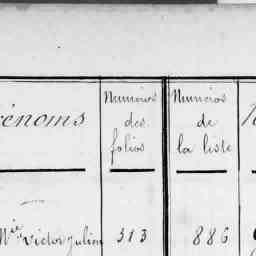 énoms
Numéros
des
folios
Numéros
de
la liste
Victor Julien
313
886